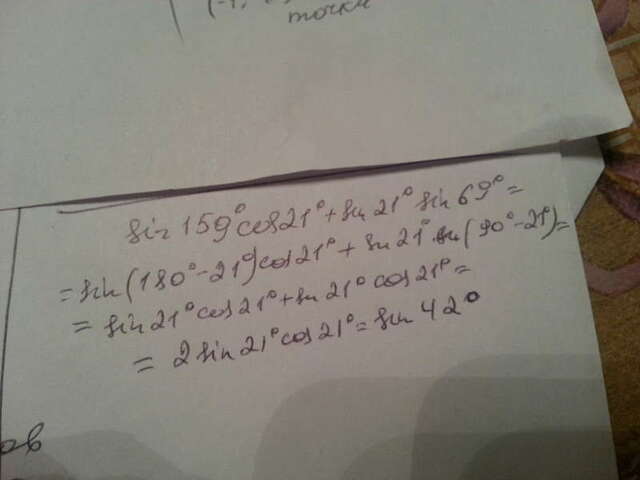 точки
sin 159° cos 21° + sin 21° sin 69° =
= sin (180° - 21°) cos 21° + sin 21° sin (90° - 21°) =
= sin 21° cos 21° + sin 21° cos 21° =
= 2 sin 21° cos 21° = sin 42°
ов